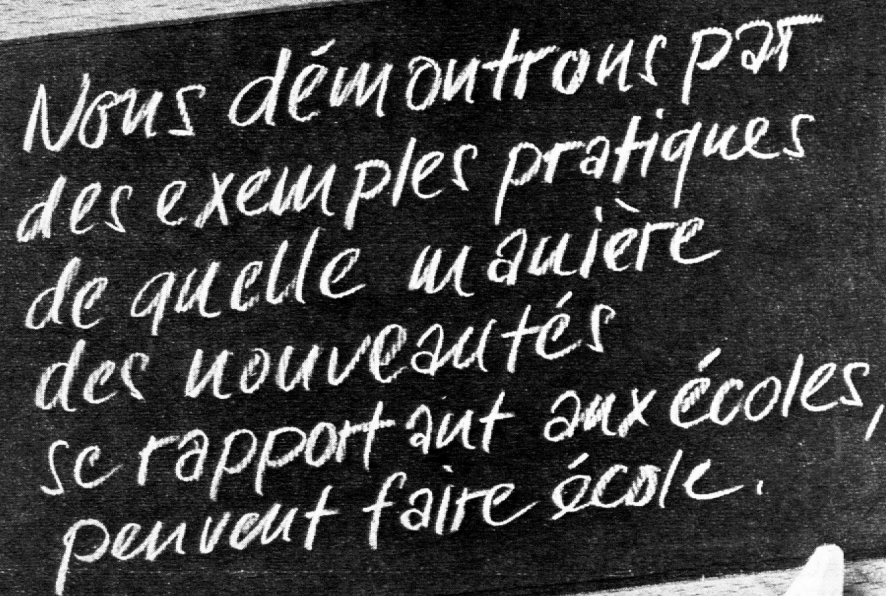 Nous démontrons par
des exemples pratiques
de quelle manière
des nouveautés
se rapportant aux écoles,
peuvent faire école.